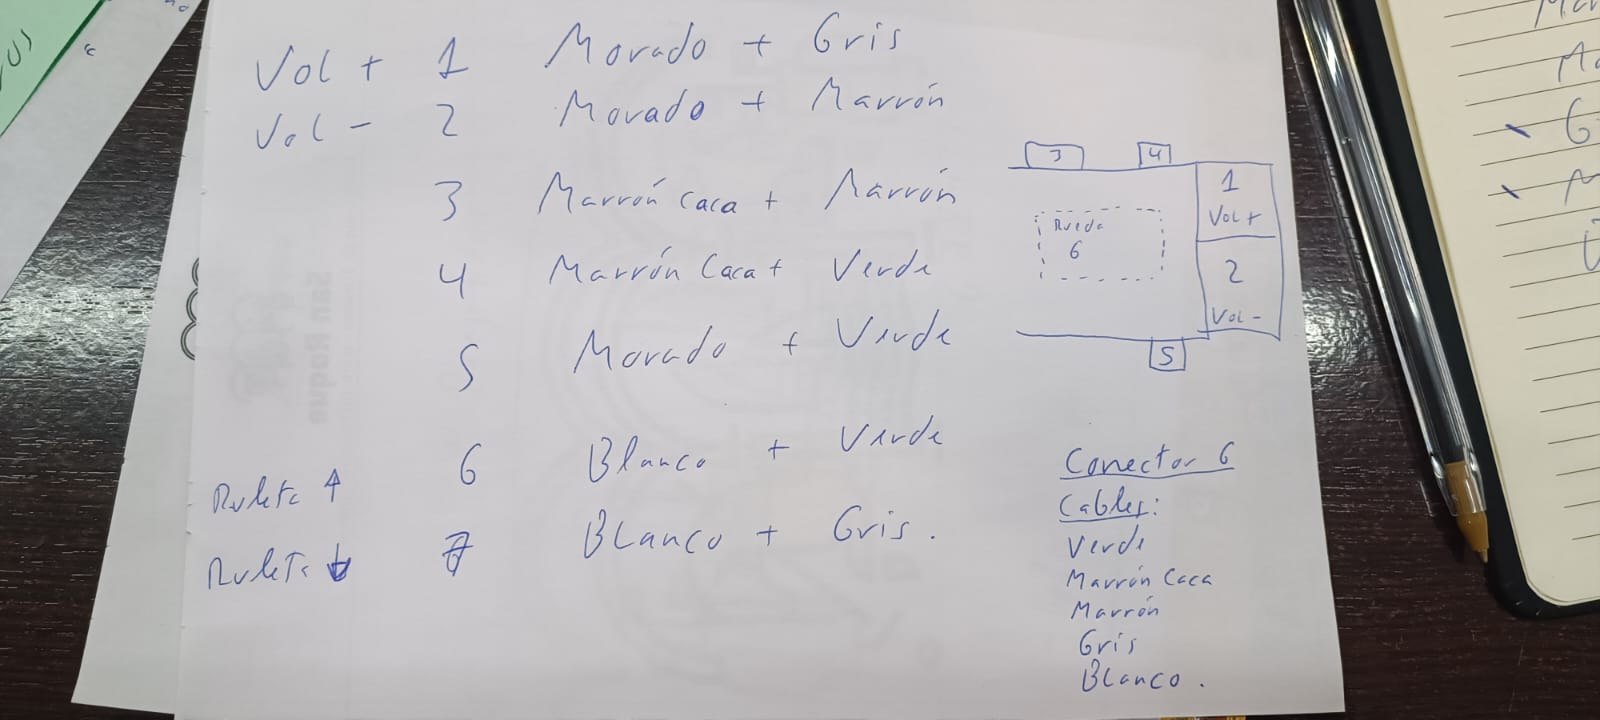 Vol + 1 Morado + Gris
Vol - 2 Morado + Marrón
3 Marrón Caca + Marrón
4 Marrón Caca + Verde
5 Morado + Verde
Ruleta ↑ 6 Blanco + Verde
Ruleta ↓ 7 Blanco + Gris.
3 4
1
Vol+
Rueda
6
2
Vol-
5
Conector 6
Cables:
Verde
Marrón Caca
Marrón
Gris
Blanco.
San Roque